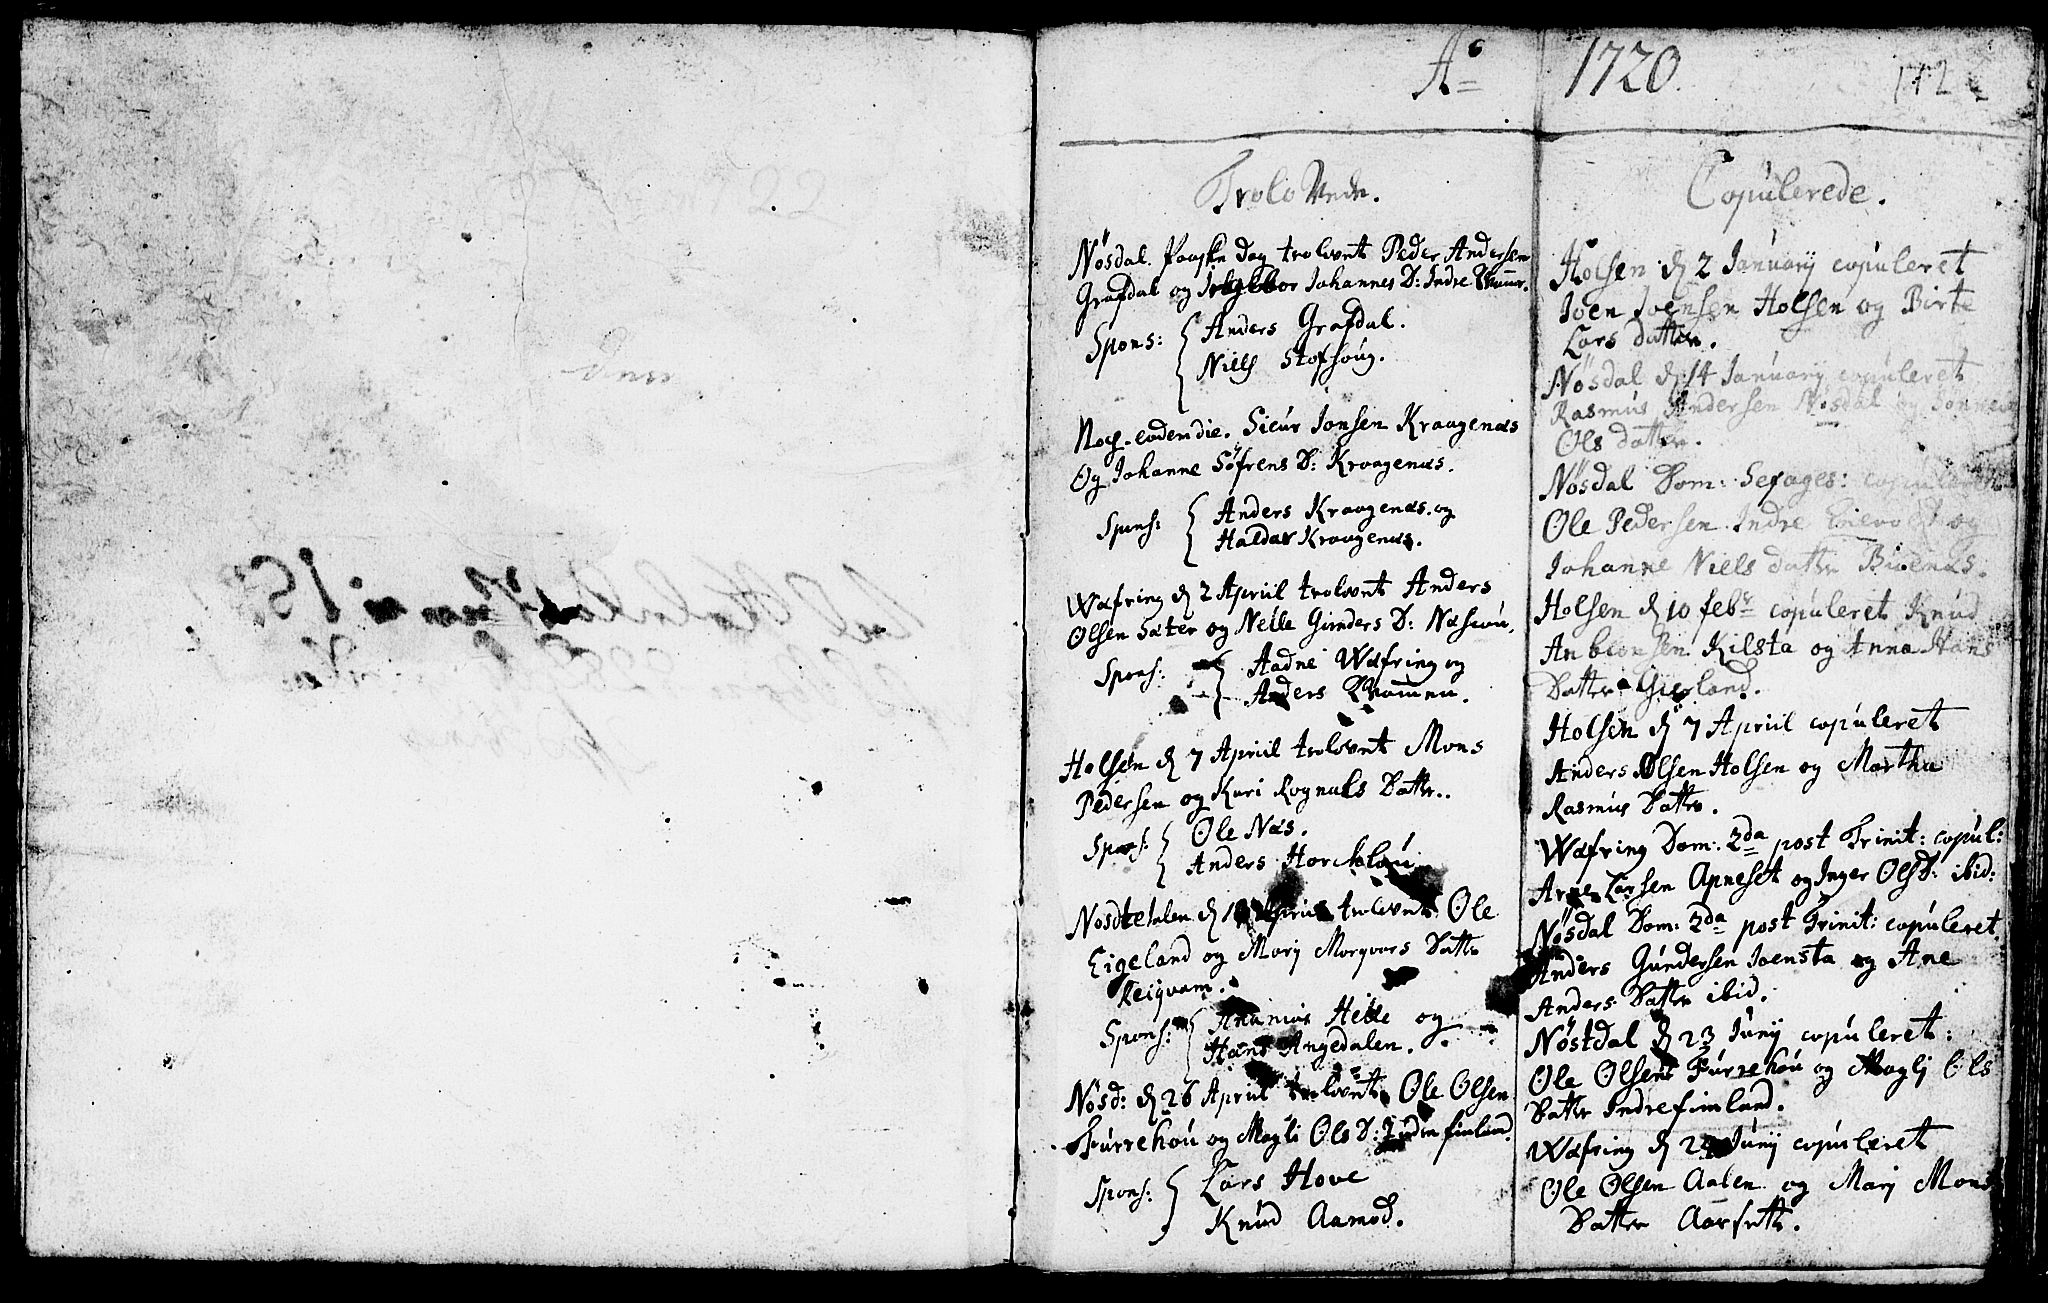 Ao 1720.
172
Trolovede.
Nösdal. Paaske Dag trolovet Peder Andersen
Grafdal og Ingebor Johannes D: Indre
Spons: Anders Grafdal.
Niels Stofsoug.
Noch eodem die. Siour Jonsen Kraagenæs
Og Johanne Söfrens D: Kraagenæs.
Spons: Anders Kraagenæs. og
Haldor Kraagenæs.
Wæfring d 2 Apriil trolovet Anders
Olsen Sæter og Neile Gunders D:
Spons: Aadne Wæfring og
Anders Kvammen.
Holsen d 7 Apriil trolovet Mons
Pedersen og Kari Rognals Datter.
Spons: Ole Næs.
Anders
d Apriil trolovet Ole
Eigeland og Marj Morqvars Datter
Reiqvam.
Spons: Ananias Helle og
Hans Angedalen.
Nösd: d 26 Apriil trolovet Ole Olsen
Furrehou og Magli Ols D: Indre finland.
Spons: Lars Hove
Knud Aamod.
Copulerede.
Holsen d 2 Januarij copuleret
Joen Joensen Holsen og Birte
Lars datter.
Nösdal d 14 Januarij copuleret
Rasmus Andersen Nösdal og
Ols datter.
Nösdal Dom: Sexages: copuleret
Ole Pedersen Indre og
Johanne Niels datter
Holsen d 10 febr copuleret Knud
Anbiornsen Kilsta og Anna Hans
Datter Gierland.
Holsen d 7 Apriil copuleret
Anders Olsen Holsen og Martha
Rasmus Datter.
Wæfring Dom: 2da post Trinit: copul:
Arne Larsen Apneset og Inger Ols D: ibid:
Nösdal Dom: 3da post Trinit: copuleret.
Anders Gundersen Joensta og Ane
Anders Datter ibid.
Nöstdal d 23 Junij copuleret:
Ole Olsen Furrehou og Magli Ols
Datter Indrefinland.
Wæfring d Junij copuleret
Ole Olsen Aalen og Marj Mons
Datter